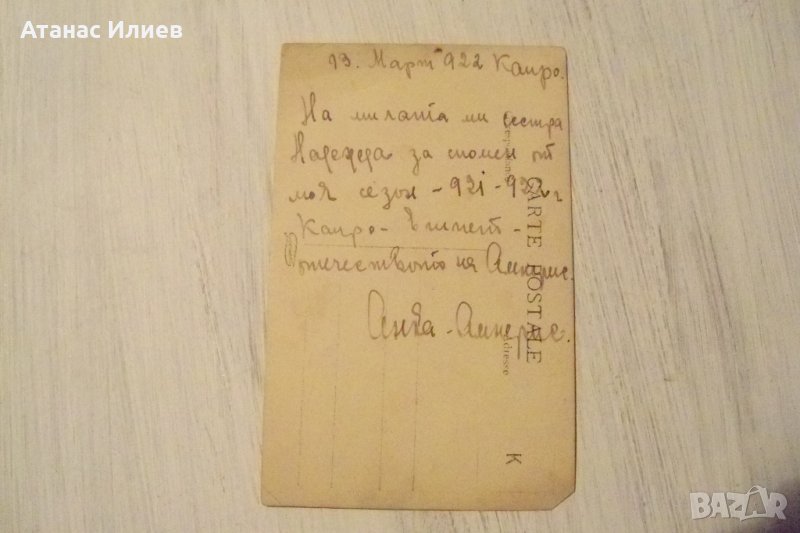 Атанас Илиев
13. Март 922 Каиро.
На милата ми сестра
Надежда за спомен от
моя сезон - 921 - 922 г
Каиро - Египет -
отечеството на Амнерис.
Анка - Амнерис.
CARTE POSTALE
Correspondance
Adresse
K
BAZAR
bg